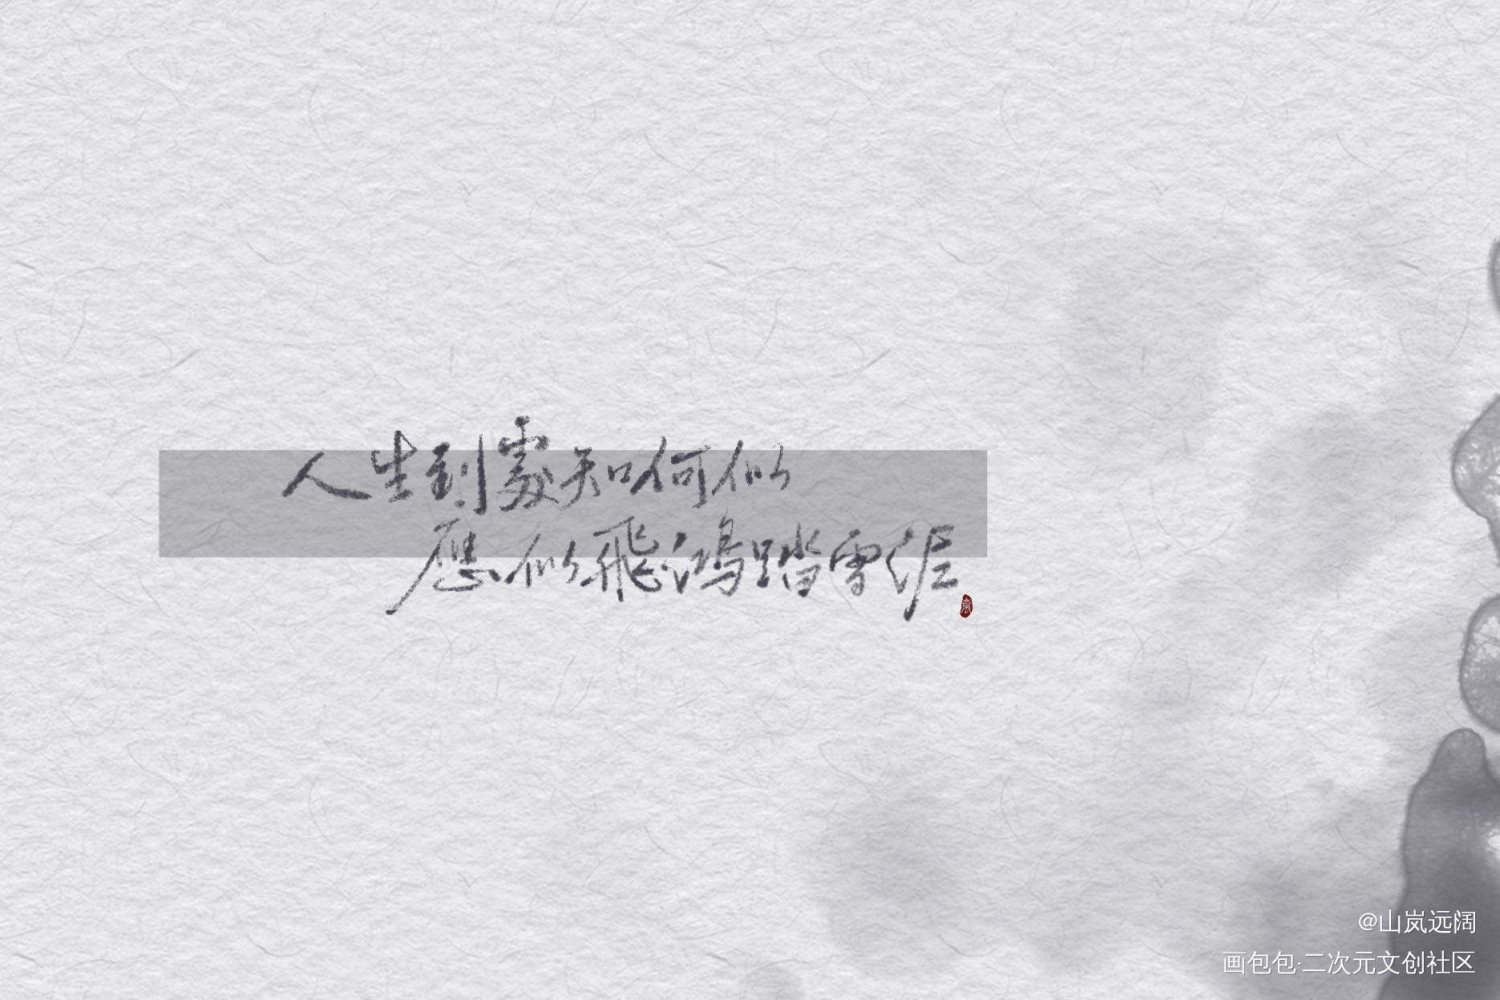 人生到處知何似
應似飛鴻踏雪涯
@山岚远阔
画包包·二次元文创社区